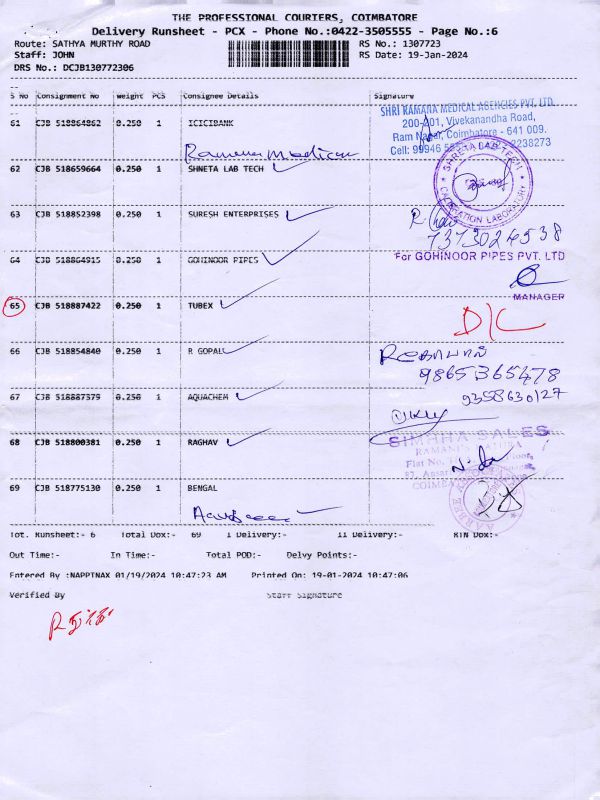 THE PROFESSIONAL COURIERS, COIMBATORE
Delivery Runsheet - PCX - Phone No.:0422-3505555 - Page No.:6
Route: SATHYA MURTHY ROAD RS No.: 1307723
Staff: JOHN RS Date: 19-Jan-2024
DRS No.: DCJB130772306
S No Consignment No Weight PCS Consignee Details Signature
SHRI RAMANA MEDICAL AGENCIES PVT. LTD.
200-201, Vivekanandha Road,
61 CJB 518864862 0.250 1 ICICIBANK
Ram Nagar, Coimbatore - 641 009.
Cell: 99946 2238273
Ramana Medical
62 CJB 518659664 0.250 1 SHNETA LAB TECH
SHRETA LAB TECH
CALIBRATION LABORATORY
63 CJB 518852398 0.250 1 SURESH ENTERPRISES
7373024538
64 CJB 518864915 0.250 1 GOHINOOR PIPES
For GOHINOOR PIPES PVT. LTD
MANAGER
65 CJB 518887422 0.250 1 TUBEX
D/C
66 CJB 518854840 0.250 1 R GOPAL
9865365478
67 CJB 518887379 0.250 1 AQUACHEM
9358630127
SIMHHA SALES
68 CJB 518800381 0.250 1 RAGHAV
Flat No.
COIMB
69 CJB 518775130 0.250 1 BENGAL
Tot. Runsheet:- 6 Total Dox:- 69 I Delivery:- II Delivery:- RTN Dox:-
Out Time:- In Time:- Total POD:- Delvy Points:-
Entered By :NAPPINAX 01/19/2024 10:47:23 AM Printed On: 19-01-2024 10:47:06
Verified By Staff Signature